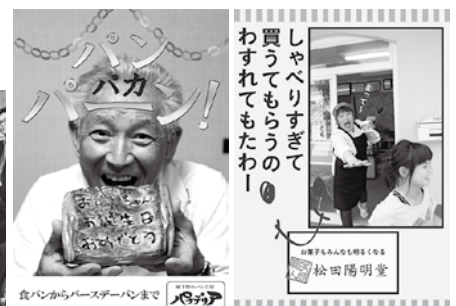 パン
パカ
パーン!
お誕生日
おめでとう
食パンからバースデーパンまで
しゃべりすぎて
買うてもらうの
わすれてもたわー
お菓子もみんなも明るくなる
松田陽明堂